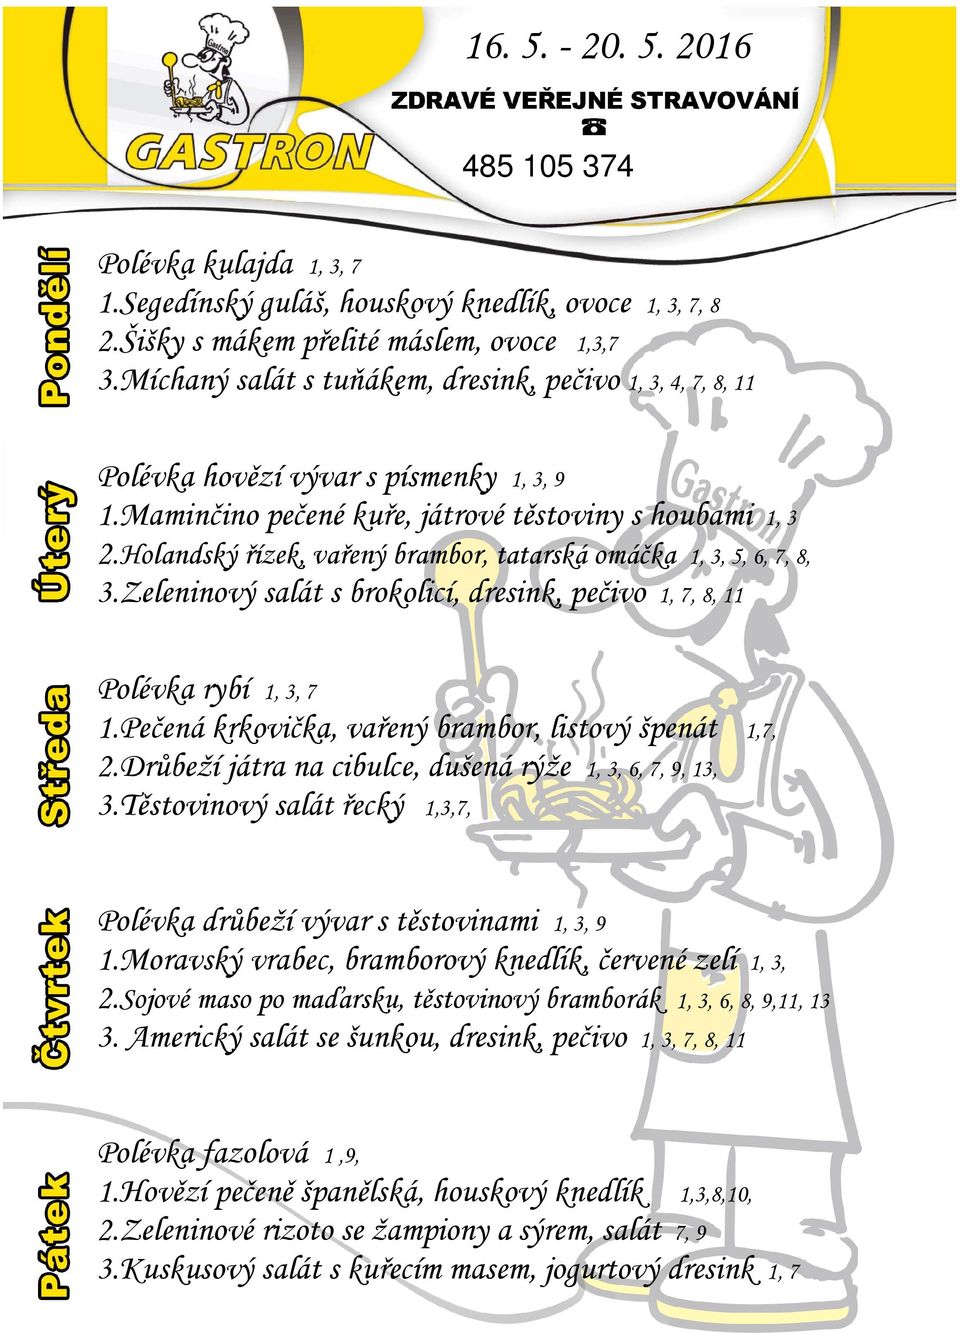 Gastron
GASTRON
16. 5. - 20. 5. 2016
ZDRAVÉ VEŘEJNÉ STRAVOVÁNÍ
☎
485 105 374
Pondělí
Polévka kulajda 1, 3, 7
1.Segedínský guláš, houskový knedlík, ovoce 1, 3, 7, 8
2.Šišky s mákem přelité máslem, ovoce 1,3,7
3.Míchaný salát s tuňákem, dresink, pečivo 1, 3, 4, 7, 8, 11
Úterý
Polévka hovězí vývar s písmenky 1, 3, 9
1.Maminčino pečené kuře, játrové těstoviny s houbami 1, 3
2.Holandský řízek, vařený brambor, tatarská omáčka 1, 3, 5, 6, 7, 8,
3.Zeleninový salát s brokolicí, dresink, pečivo 1, 7, 8, 11
Gastron
Středa
Polévka rybí 1, 3, 7
1.Pečená krkovička, vařený brambor, listový špenát 1,7,
2.Drůbeží játra na cibulce, dušená rýže 1, 3, 6, 7, 9, 13,
3.Těstovinový salát řecký 1,3,7,
Čtvrtek
Polévka drůbeží vývar s těstovinami 1, 3, 9
1.Moravský vrabec, bramborový knedlík, červené zelí 1, 3,
2.Sojové maso po maďarsku, těstovinový bramborák 1, 3, 6, 8, 9,11, 13
3. Americký salát se šunkou, dresink, pečivo 1, 3, 7, 8, 11
Pátek
Polévka fazolová 1 ,9,
1.Hovězí pečeně španělská, houskový knedlík 1,3,8,10,
2.Zeleninové rizoto se žampiony a sýrem, salát 7, 9
3.Kuskusový salát s kuřecím masem, jogurtový dresink 1, 7